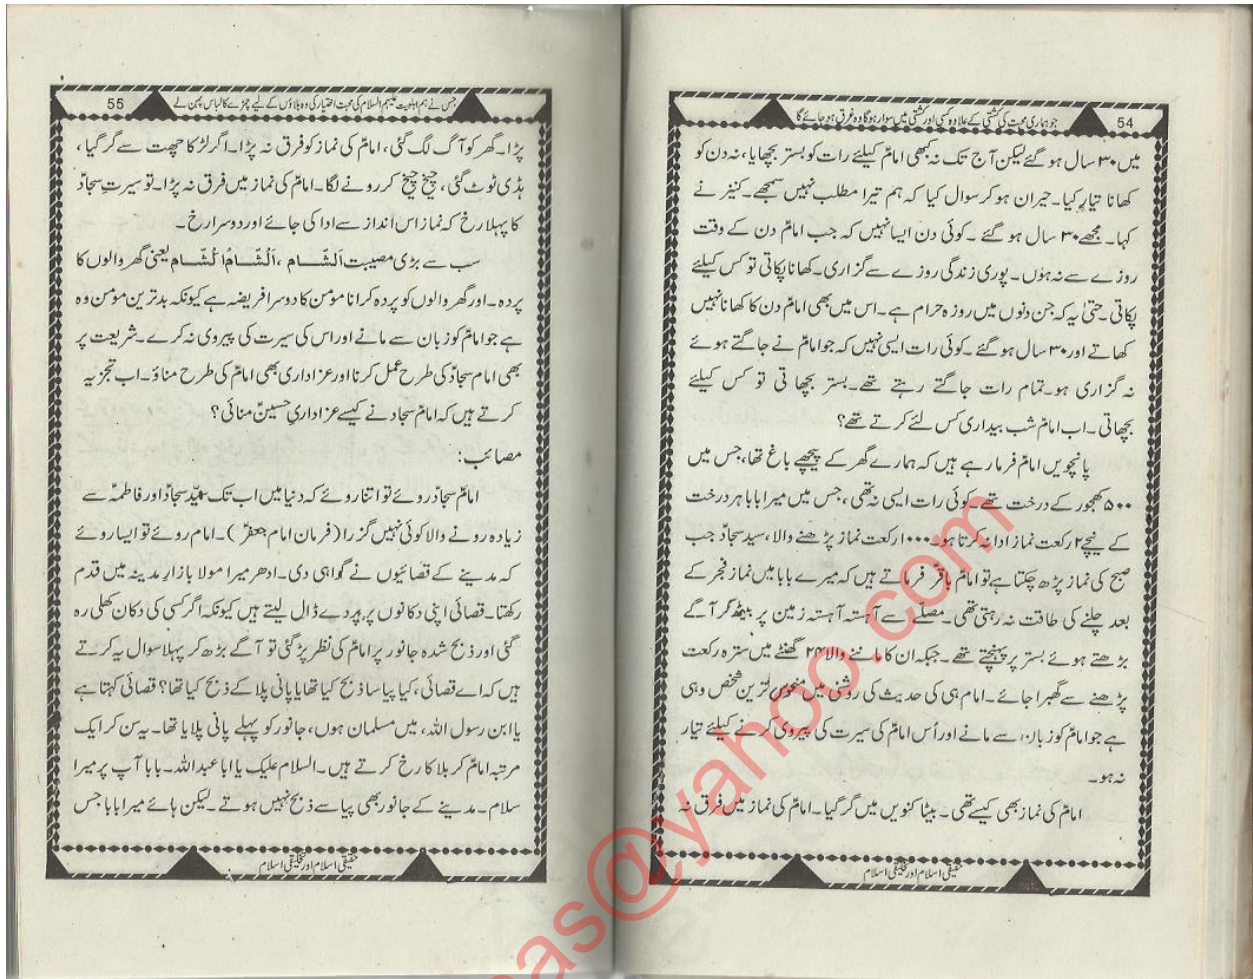 54
جو ہماری محبت کی کشتی کے علاوہ کسی اور کشتی میں سوار ہوگا وہ غرق ہو جائے گا
میں ۳۰ سال ہو گئے لیکن آج تک نہ کبھی امامؑ کیلئے رات کو بستر بچھایا، نہ دن کو
کھانا تیار کیا۔ حیران ہو کر سوال کیا کہ ہم تیرا مطلب نہیں سمجھے۔ کنیز نے
کہا۔ مجھے ۳۰ سال ہو گئے ۔ کوئی دن ایسا نہیں کہ جب امامؑ دن کے وقت
روزے سے نہ ہوں۔ پوری زندگی روزے سے گزاری۔ کھانا پکاتی تو کس کیلئے
پکاتی۔ حتیٰ یہ کہ جن دنوں میں روزہ حرام ہے۔ اس میں بھی امامؑ دن کا کھانا نہیں
کھاتے اور ۳۰ سال ہو گئے۔ کوئی رات ایسی نہیں کہ جو امامؑ نے جاگتے ہوئے
نہ گزاری ہو۔ تمام رات جاگتے رہتے تھے۔ بستر بچھاتی تو کس کیلئے
بچھاتی۔ اب امامؑ شب بیداری کس لئے کرتے تھے؟
پانچویں امامؑ فرما رہے ہیں کہ ہمارے گھر کے پیچھے باغ تھا، جس میں
۵۰۰ کھجور کے درخت تھے۔ کوئی رات ایسی نہ تھی، جس میں میرا بابا ہر درخت
کے نیچے ۲ رکعت نماز ادا نہ کرتا ہو۔ ۱۰۰۰ رکعت نماز پڑھنے والا، سید سجادؑ جب
صبح کی نماز پڑھ چکتا ہے تو امامؑ باقرؑ فرماتے ہیں کہ میرے بابا میں نماز فجر کے
بعد چلنے کی طاقت نہ رہتی تھی۔ مصلّے سے آہستہ آہستہ زمین پر بیٹھ کر آگے
بڑھتے ہوئے بستر پر پہنچتے تھے۔ جبکہ ان کا ماننے والا ۲۴ گھنٹے میں سترہ رکعت
پڑھنے سے گھبرا جائے۔ امامؑ ہی کی حدیث کی روشنی میں منحوس ترین شخص وہی
ہے جو امامؑ کو زبان سے مانے اور اُس امامؑ کی سیرت کی پیروی کرنے کیلئے تیار
نہ ہو۔
امامؑ کی نماز بھی کیسے تھی۔ بیٹا کنویں میں گر گیا۔ امامؑ کی نماز میں فرق نہ
حقیقی اسلام اور تخلیقی اسلام
55
جس نے ہم اہلبیت علیہم السلام کی محبت اختیار کی وہ بلاؤں کے لیے چمڑے کا لباس پہن لے
پڑا۔ گھر کو آگ لگ گئی، امامؑ کی نماز کو فرق نہ پڑا۔ اگر لڑکا چھت سے گر گیا،
ہڈی ٹوٹ گئی، چیخ چیخ کر رونے لگا۔ امامؑ کی نماز میں فرق نہ پڑا۔ تو سیرتِ سجادؑ
کا پہلا رخ کہ نماز اس انداز سے ادا کی جائے اور دوسرا رخ۔
سب سے بڑی مصیبت اَلشّام ، اَلشّامُ اَلشّام یعنی گھر والوں کا
پردہ۔ اور گھر والوں کو پردہ کرانا مؤمن کا دوسرا فریضہ ہے کیونکہ بدترین مؤمن وہ
ہے جو امامؑ کو زبان سے مانے اور اس کی سیرت کی پیروی نہ کرے۔ شریعت پر
بھی امام سجادؑ کی طرح عمل کرنا اور عزاداری بھی امامؑ کی طرح مناؤ۔ اب تجزیہ
کرتے ہیں کہ امام سجادؑ نے کیسے عزاداریِ حسینؑ منائی؟
مصائب:
امامؑ سجادؑ روئے تو اتنا روئے کہ دنیا میں اب تک سیّد سجادؑ اور فاطمہؑ سے
زیادہ رونے والا کوئی نہیں گزرا (فرمان امام جعفرؑ)۔ امام روئے تو ایسا روئے
کہ مدینے کے قصائیوں نے گواہی دی۔ ادھر میرا مولا بازارِ مدینہ میں قدم
رکھتا۔ قصائی اپنی دکانوں پر پردے ڈال لیتے ہیں کیونکہ اگر کسی کی دکان کھلی رہ
گئی اور ذبح شدہ جانور پر امامؑ کی نظر پڑ گئی تو آگے بڑھ کر پہلا سوال یہ کرتے
ہیں کہ اے قصائی، کیا پیاسا ذبح کیا تھا یا پانی پلا کے ذبح کیا تھا؟ قصائی کہتا ہے
یا ابن رسول اللہ، میں مسلمان ہوں، جانور کو پہلے پانی پلایا تھا۔ یہ سن کر ایک
مرتبہ امامؑ کربلا کا رخ کرتے ہیں۔ السلام علیک یا ابا عبد اللہ۔ بابا آپ پر میرا
سلام۔ مدینے کے جانور بھی پیاسے ذبح نہیں ہوتے۔ لیکن ہائے میرا بابا جس
حقیقی اسلام اور تخلیقی اسلام
bas@yahoo.com